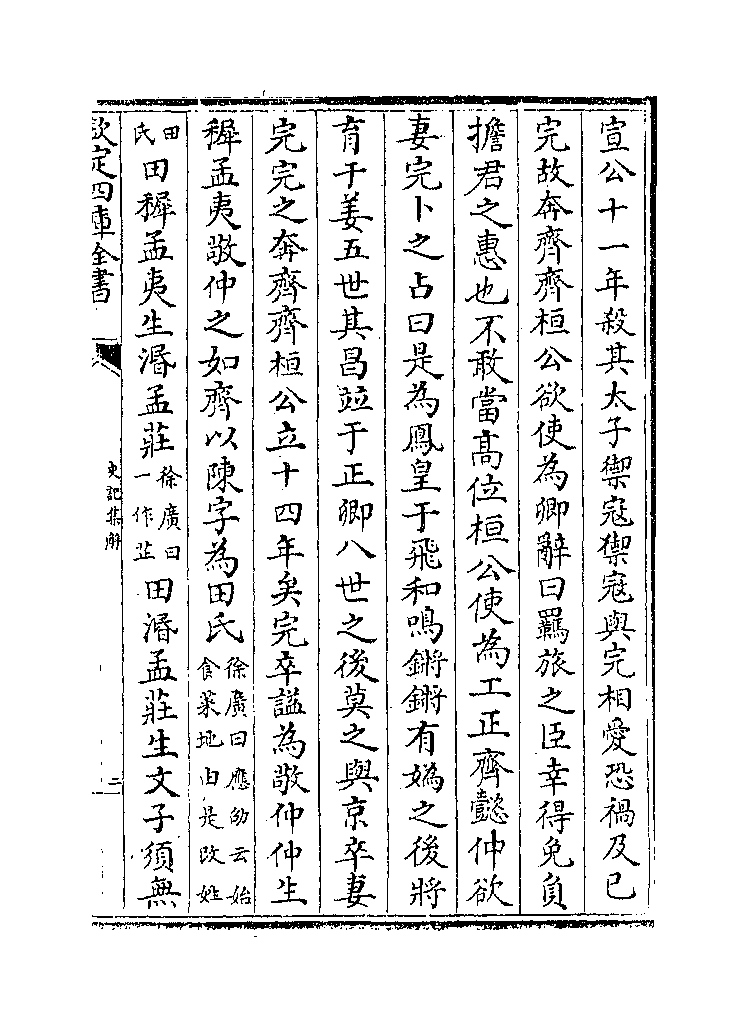 宣公十一年殺其太子禦寇禦寇與完相愛恐禍及已
完故奔齊齊桓公欲使為卿辭曰羈旅之臣幸得免負
擔君之惠也不敢當髙位桓公使為工正齊懿仲欲
妻完卜之占曰是為鳳皇于飛和鳴鏘鏘有媯之後將
育于姜五世其昌竝于正卿八世之後莫之與京卒妻
完完之奔齊齊桓公立十四年矣完卒諡為敬仲仲生
穉孟夷敬仲之如齊以陳字為田氏徐廣曰應劭云始食菜地由是改姓
田氏田穉孟夷生湣孟莊徐廣曰一作芷田湣孟莊生文子須無
欽定四庫全書
史記集解
二